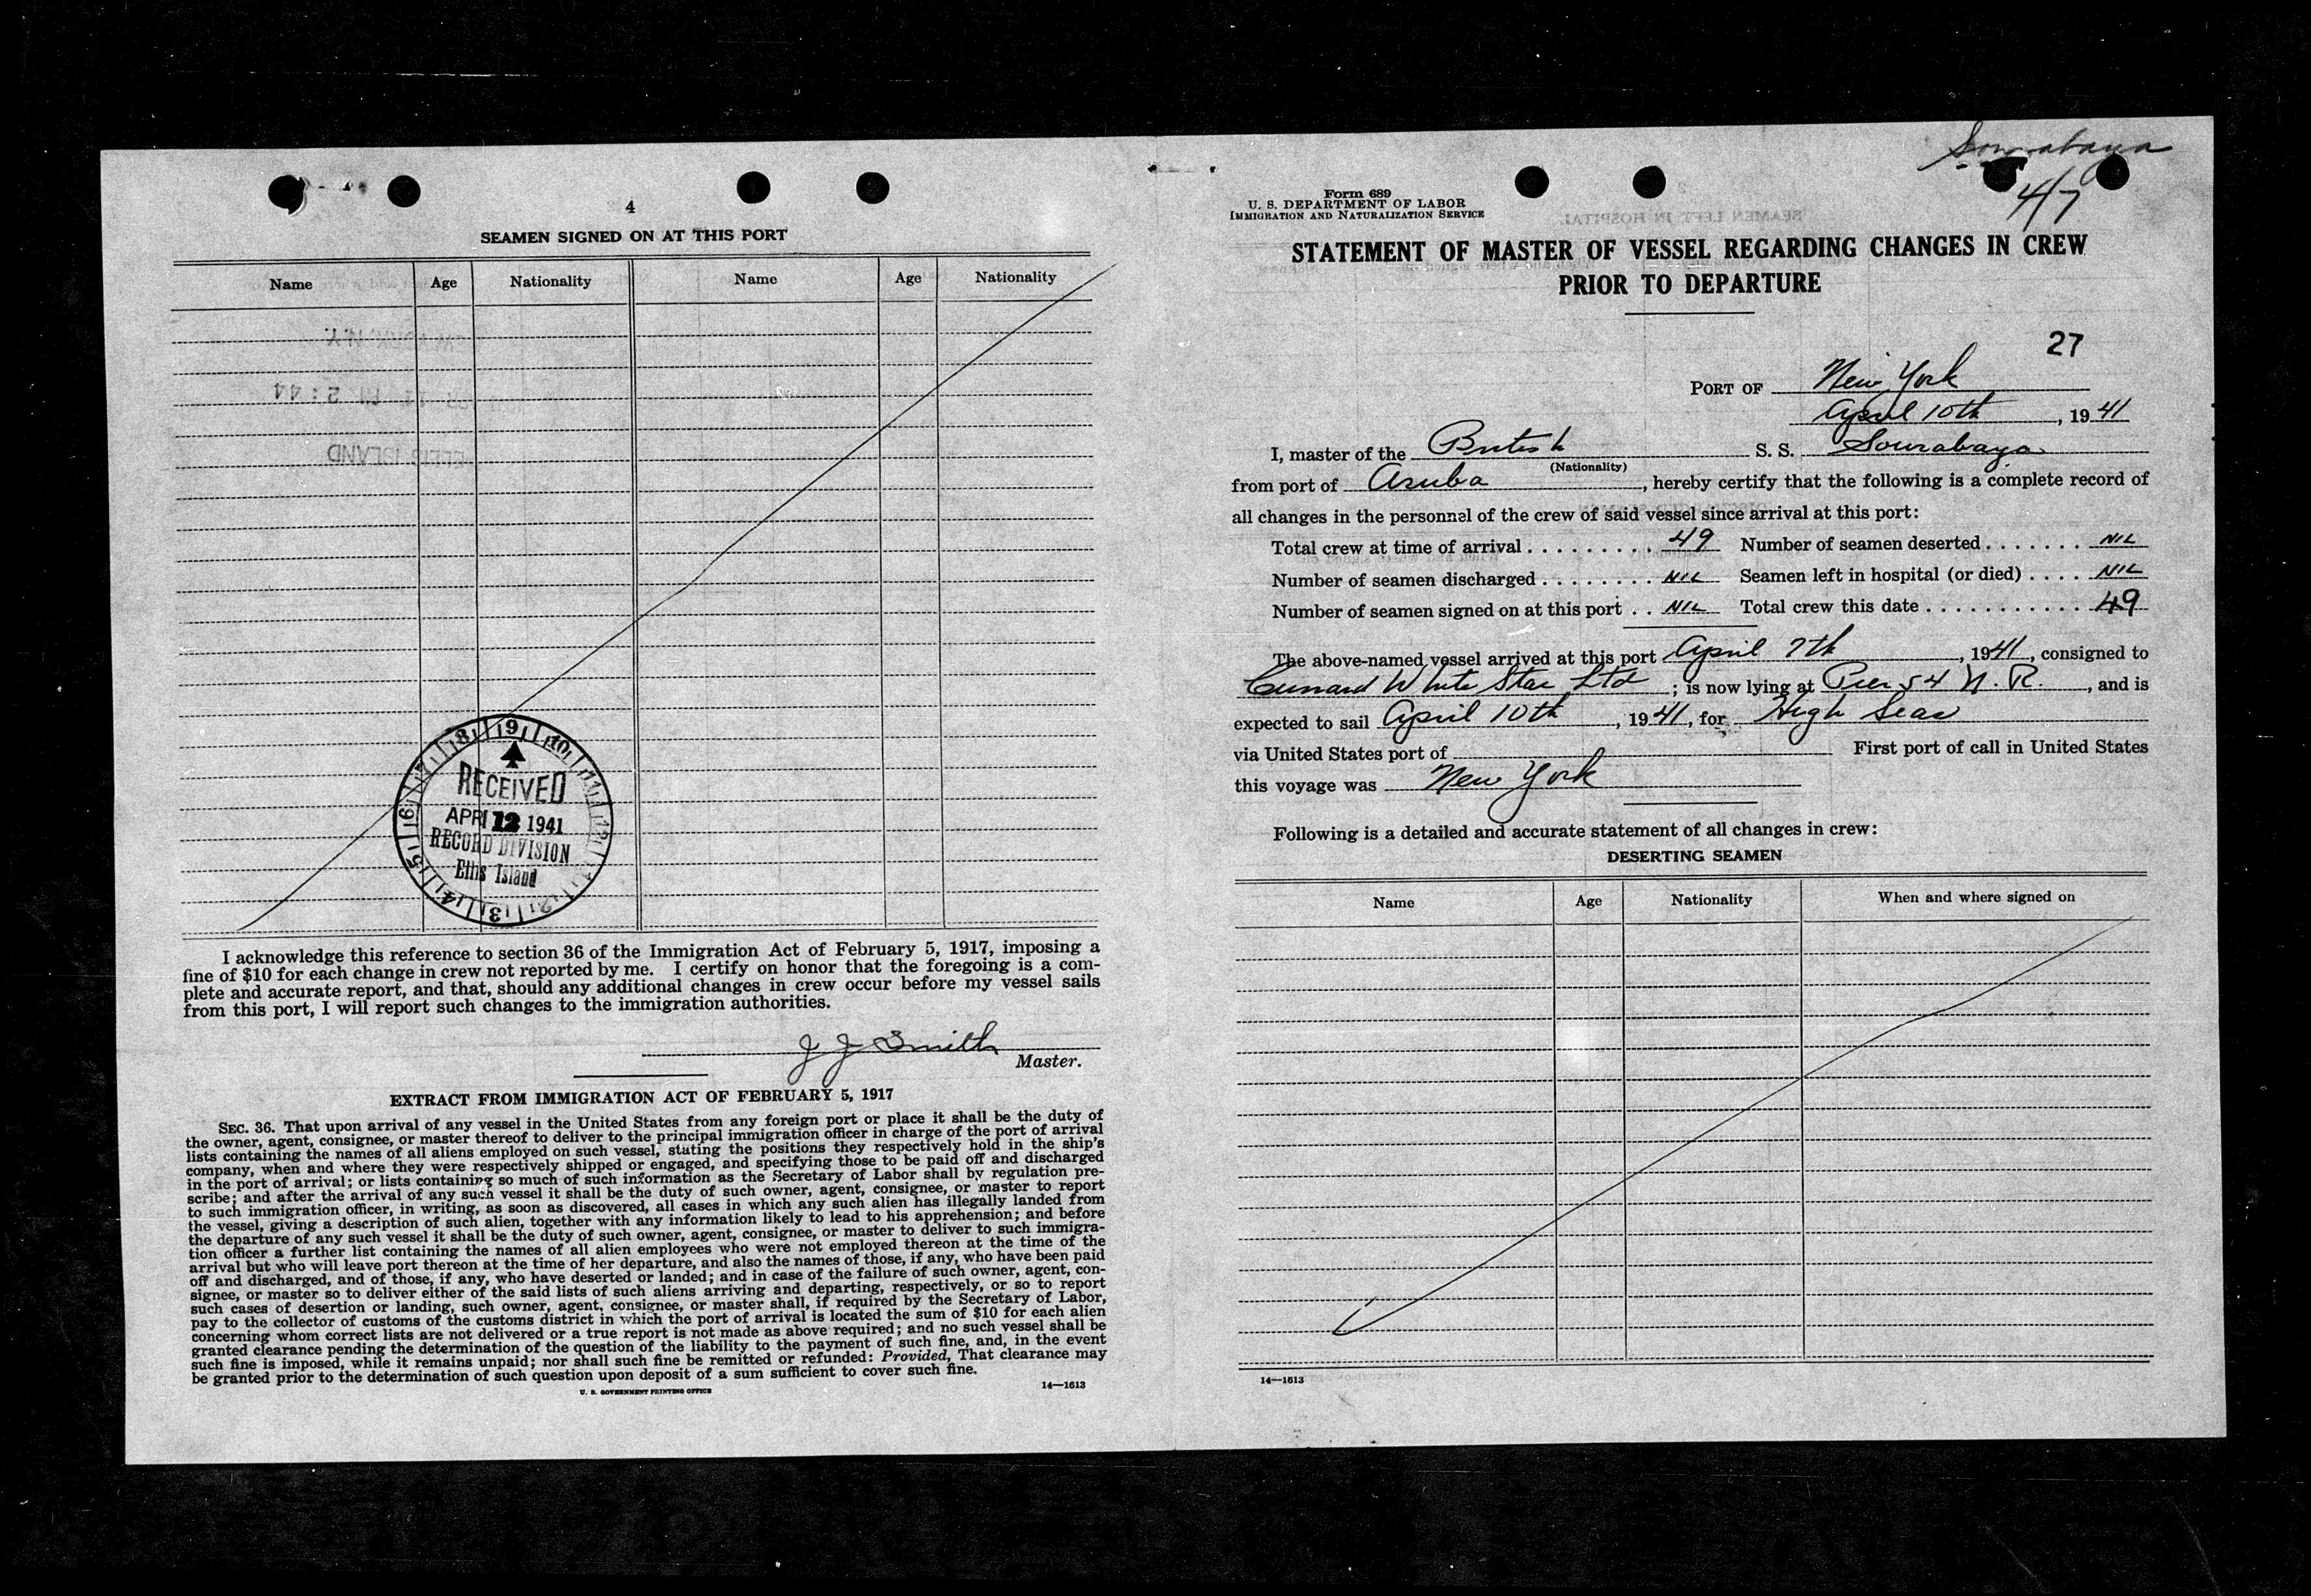 4
SEAMEN SIGNED ON AT THIS PORT
Name Age Nationality Name Age Nationality
RECEIVED
APR 12 1941
RECORD DIVISION
Ellis Island
I acknowledge this reference to section 36 of the Immigration Act of February 5, 1917, imposing a
fine of $10 for each change in crew not reported by me. I certify on honor that the foregoing is a com-
plete and accurate report, and that, should any additional changes in crew occur before my vessel sails
from this port, I will report such changes to the immigration authorities.
J J Smith
Master.
EXTRACT FROM IMMIGRATION ACT OF FEBRUARY 5, 1917
SEC. 36. That upon arrival of any vessel in the United States from any foreign port or place it shall be the duty of
the owner, agent, consignee, or master thereof to deliver to the principal immigration officer in charge of the port of arrival
lists containing the names of all aliens employed on such vessel, stating the positions they respectively hold in the ship's
company, when and where they were respectively shipped or engaged, and specifying those to be paid off and discharged
in the port of arrival; or lists containing so much of such information as the Secretary of Labor shall by regulation pre-
scribe; and after the arrival of any such vessel it shall be the duty of such owner, agent, consignee, or master to report
to such immigration officer, in writing, as soon as discovered, all cases in which any such alien has illegally landed from
the vessel, giving a description of such alien, together with any information likely to lead to his apprehension; and before
the departure of any such vessel it shall be the duty of such owner, agent, consignee, or master to deliver to such immigra-
tion officer a further list containing the names of all alien employees who were not employed thereon at the time of the
arrival but who will leave port thereon at the time of her departure, and also the names of those, if any, who have been paid
off and discharged, and of those, if any, who have deserted or landed; and in case of the failure of such owner, agent, con-
signee, or master so to deliver either of the said lists of such aliens arriving and departing, respectively, or so to report
such cases of desertion or landing, such owner, agent, consignee, or master shall, if required by the Secretary of Labor,
pay to the collector of customs of the customs district in which the port of arrival is located the sum of $10 for each alien
concerning whom correct lists are not delivered or a true report is not made as above required; and no such vessel shall be
granted clearance pending the determination of the question of the liability to the payment of such fine, and, in the event
such fine is imposed, while it remains unpaid; nor shall such fine be remitted or refunded: Provided, That clearance may
be granted prior to the determination of such question upon deposit of a sum sufficient to cover such fine.
U. S. GOVERNMENT PRINTING OFFICE 14—1613
Sourabaya
4/7
Form 689
U. S. DEPARTMENT OF LABOR
IMMIGRATION AND NATURALIZATION SERVICE
STATEMENT OF MASTER OF VESSEL REGARDING CHANGES IN CREW
PRIOR TO DEPARTURE
27
PORT OF New York
April 10th, 1941
I, master of the British S. S. Sourabaya
(Nationality)
from port of Aruba, hereby certify that the following is a complete record of
all changes in the personnel of the crew of said vessel since arrival at this port:
Total crew at time of arrival . . . . . . . . . 49 Number of seamen deserted . . . . . . . NIL
Number of seamen discharged . . . . . . . . NIL Seamen left in hospital (or died) . . . . NIL
Number of seamen signed on at this port . . NIL Total crew this date . . . . . . . . . . . . 49
The above-named vessel arrived at this port April 7th, 1941, consigned to
Cunard White Star Ltd; is now lying at Pier 54 N. R., and is
expected to sail April 10th, 1941, for High Seas
via United States port of First port of call in United States
this voyage was New York
Following is a detailed and accurate statement of all changes in crew:
DESERTING SEAMEN
Name Age Nationality When and where signed on
14—1613